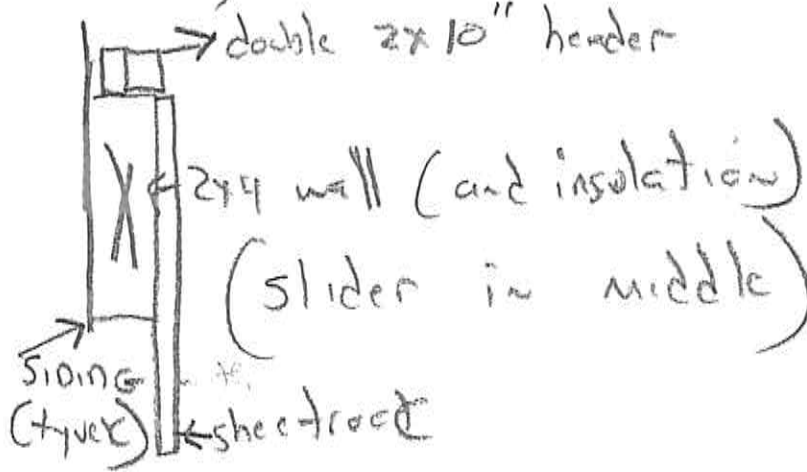 double 2x10" header
2x4 wall (and insolation)
(slider in middle)
SIDING
(tyvek)
sheetrock